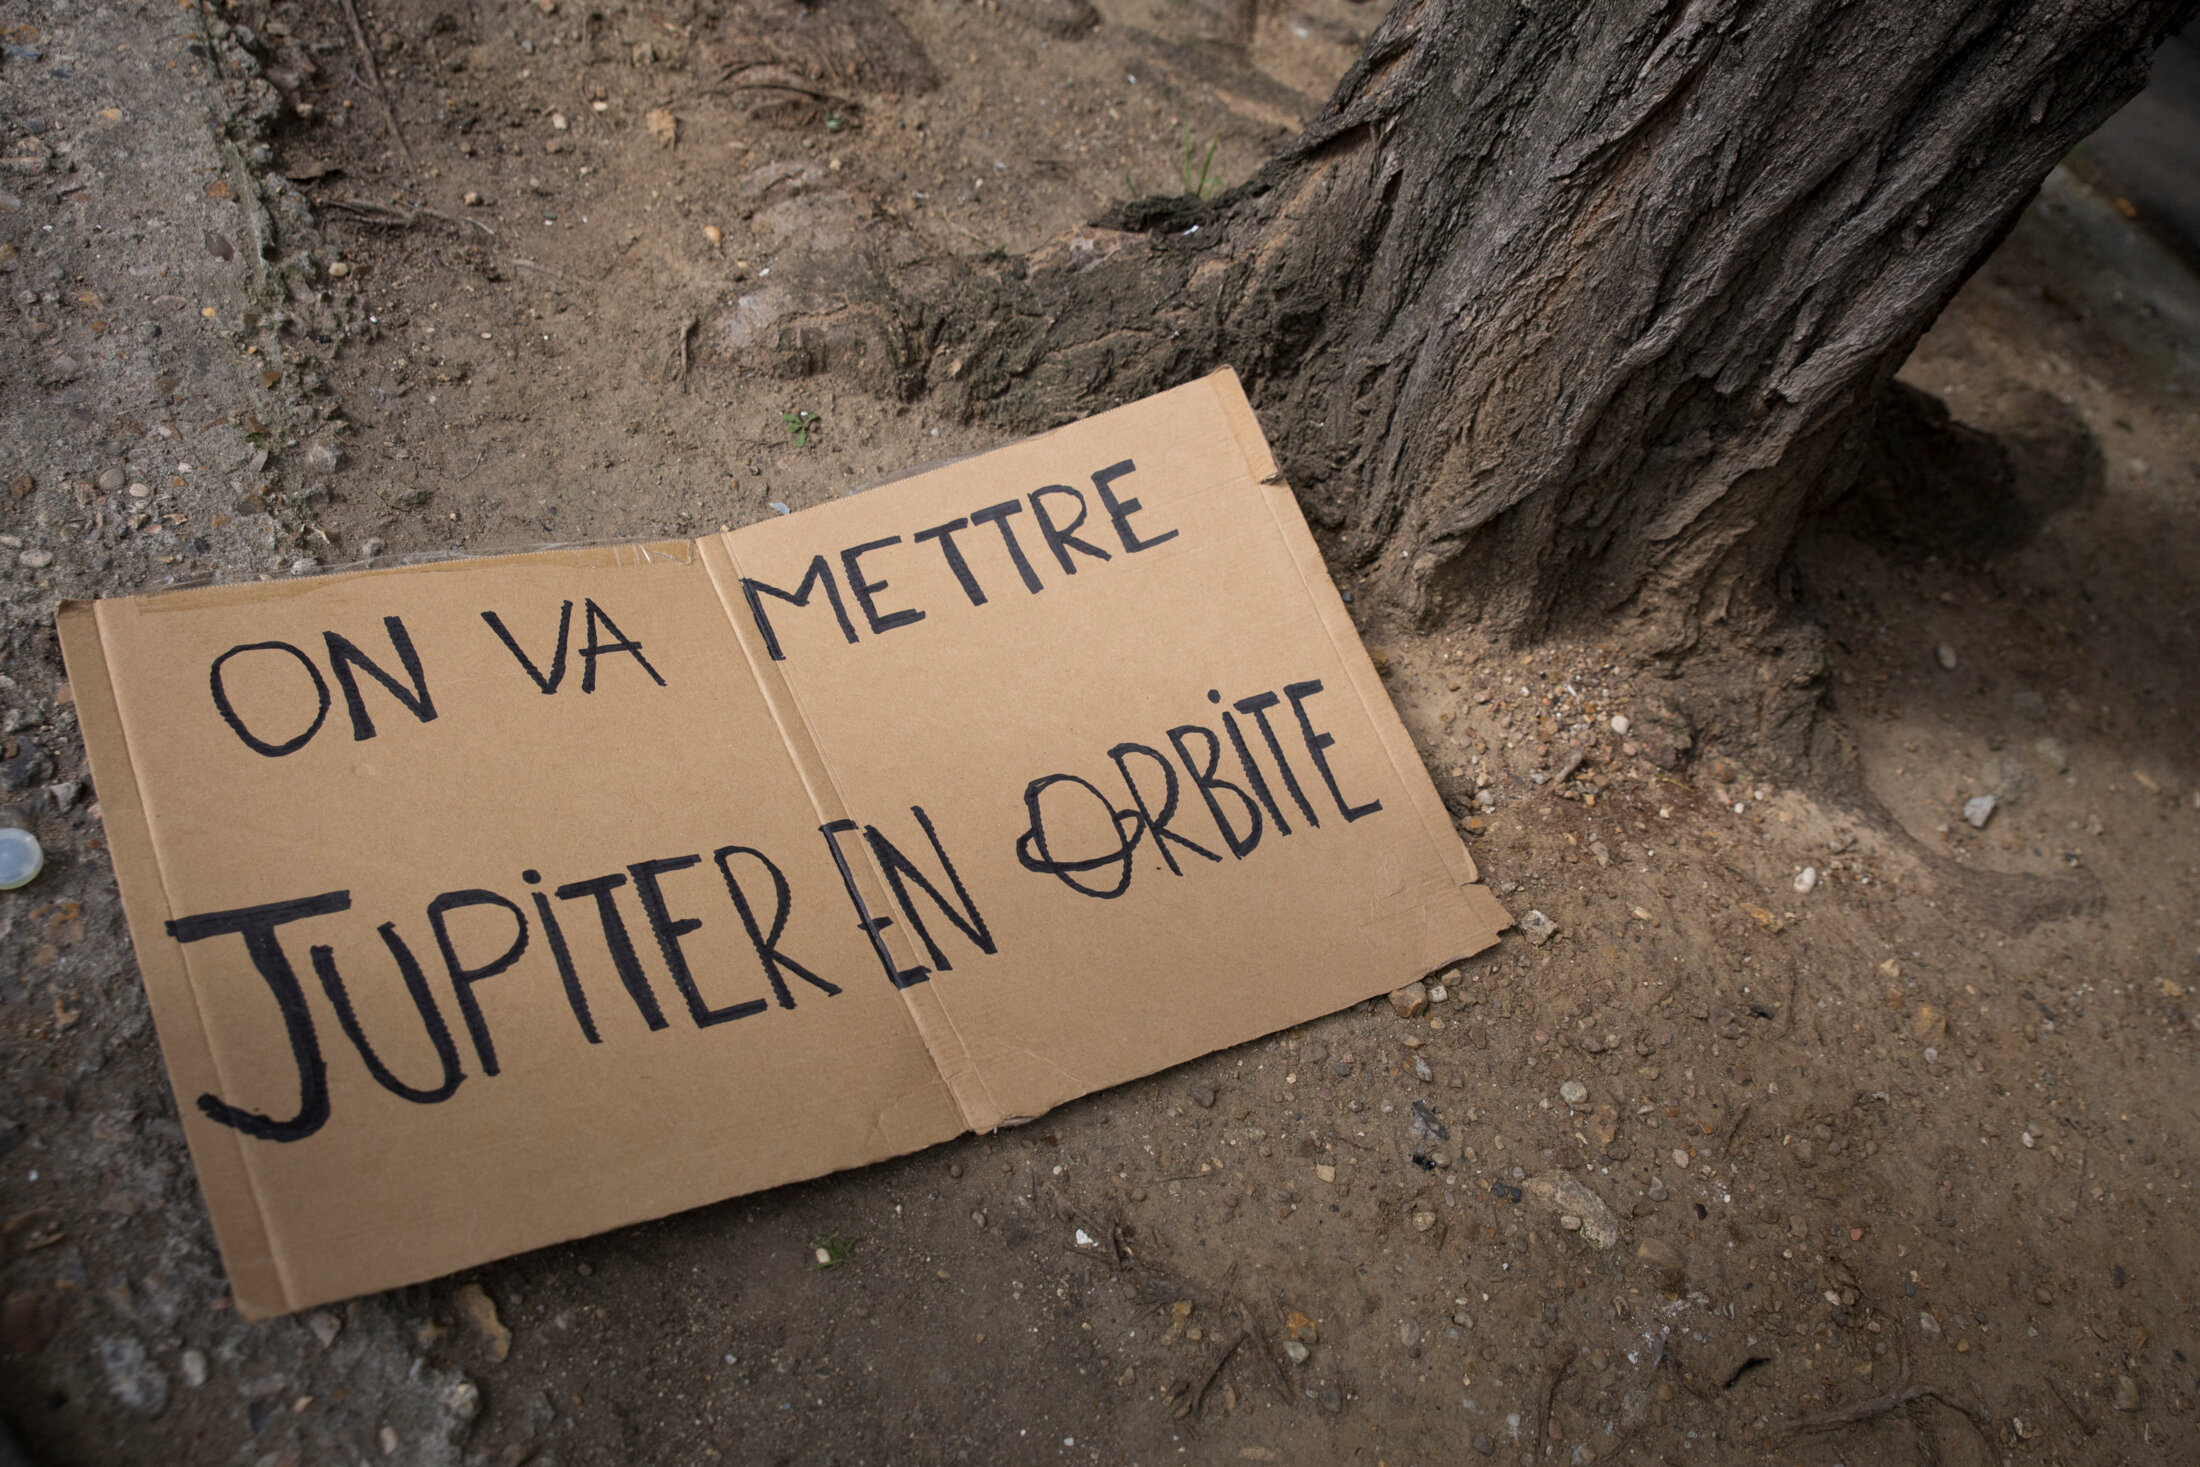 ON VA METTRE
JUPiTER EN ORBiTE